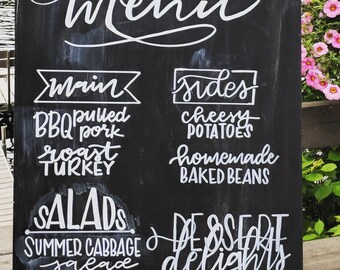 Menu
main
BBQ pulled pork
roast
TURKEY
sides
cheesy
POTATOES
homemade
BAKED BEANS
SALADS
SUMMER CABBAGE
salad
DESSERT
delights